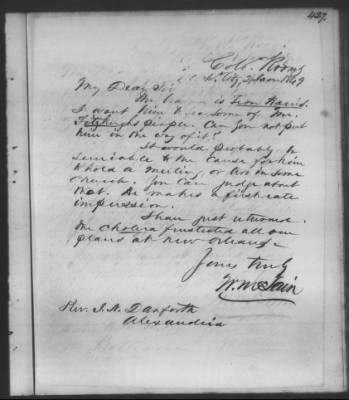 427.
Col. Rooms
My Dear Sir
The bearer is Zion Harris.
I want him to see some of Mr.
people. Can you not put
him in the way of it?
It would probably be
serviceable to the cause for him
to hold a meeting, or two in some
church. You can judge about
that. He makes a first rate
impression.
I have just returned.
The cholera frustrated all our
plans at New Orleans.
Yours truly
W. McLain
Rev. J. N. Danforth
Alexandria